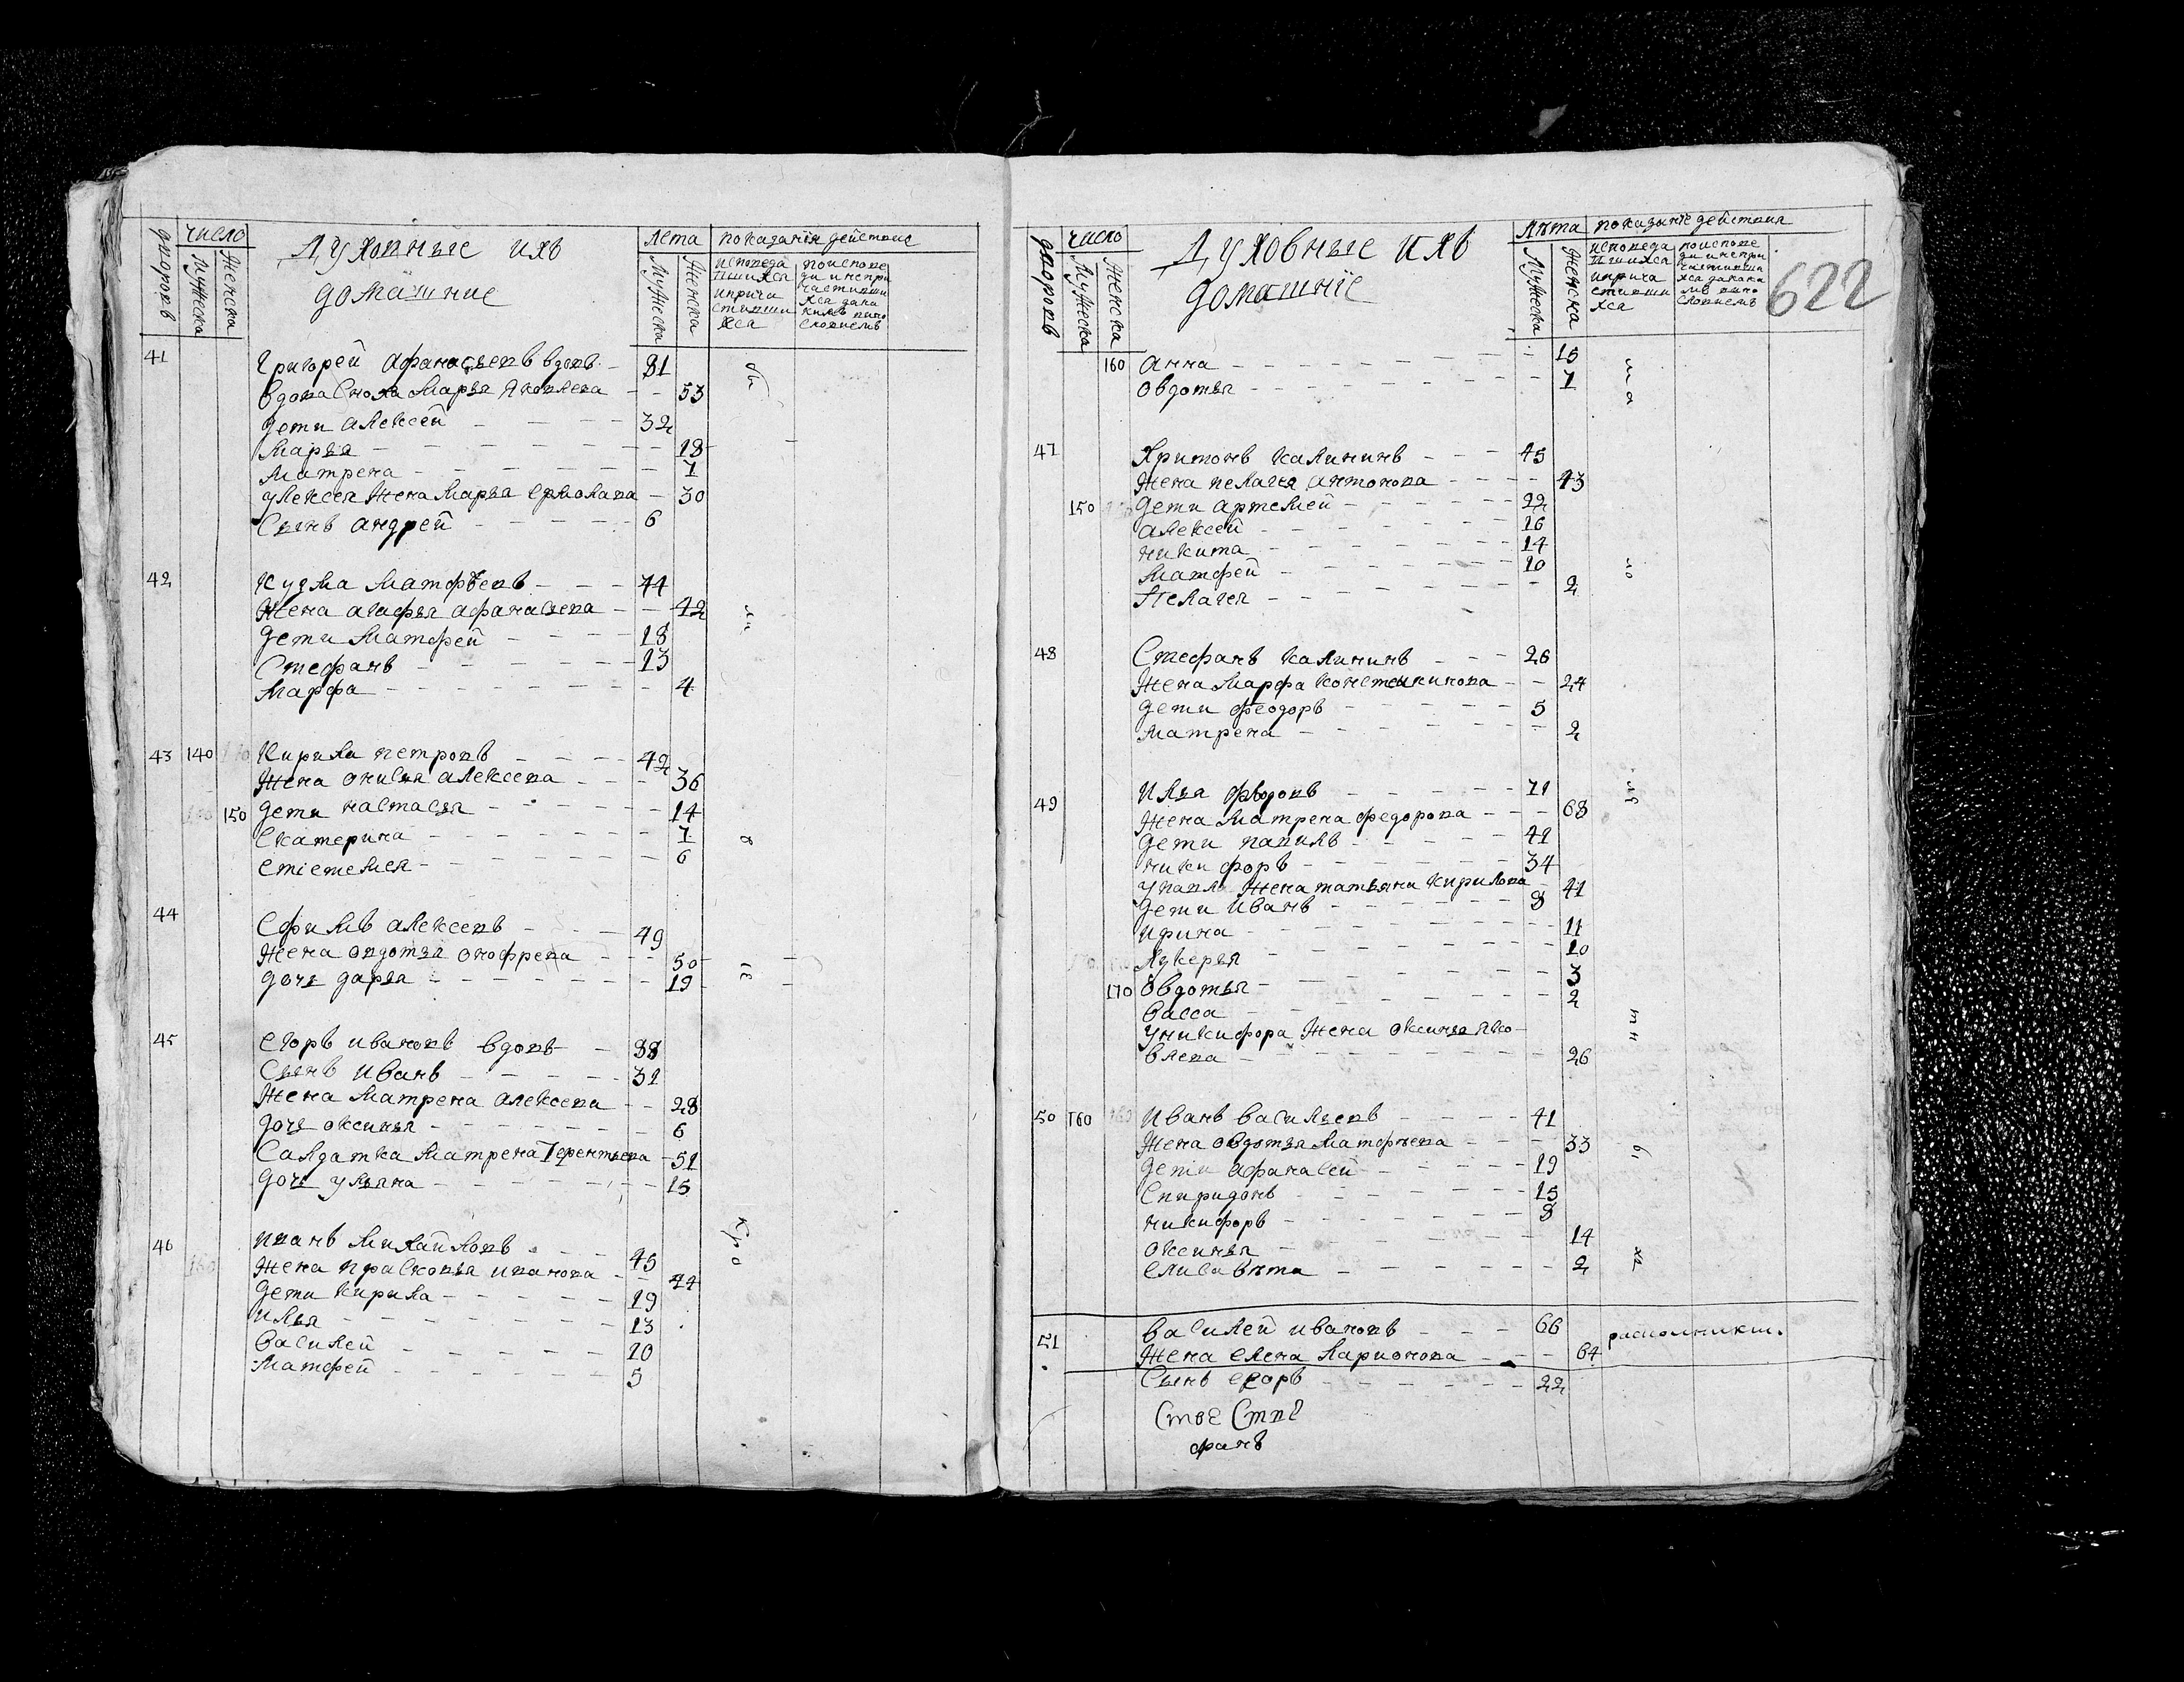 дворовъ число мужеска женска Духовные ихъ домашние Лета мужеска женска показание действие
исповеда
вшихса
и прича
стивши
хса
41 Григорей Афанасьевъ вдовъ 81
вдова Сноха Марья Яковлева 53
дети Алексей 32
Марья 18
Матрена 7
у Алексея Жена Марья Ермолаева 30
Сынъ Андрей 6
42 Кузма Матфѣевъ 44
Жена Агафья Афанасьева 42
дети Матфей 18
Стефанъ 13
Марфа 4
43 140 Кирила петровъ 42
Жена Онисья Алексеева 36
150 дети настасья 14
Екатерина 7
6
44 Ефимъ Алексеевъ 49
Жена Овдотья Онофрева 50
дочь дарья 19
45 Егоръ Ивановъ вдовъ 88
Сынъ Иванъ 31
Жена Матрена Алексеева 28
дочь Оксинья 6
Салдатка Матрена Терентьева 51
дочь Ульяна 15
46 Иванъ Михайловъ 45
Жена Прасковья Иванова 44
дети Кирила 19
Илья 13
Василей 10
Матфей 5
дворовъ число мужеска женска Духовные ихъ домашніе Лѣта мужеска женска показание действия
исповеда
вшихса
и прича
стивши
хса
622
160 Анна 15
Овдотья 1
47 Харитонъ Калининъ 45
Жена пелагея Антонова 43
150 дети Артемей 22
Алексей 16
никита 14
Матфей 10
Пелагея 2
48 Стефанъ Калининъ 26
Жена Марфа Константинова 24
дети Феодоръ 5
Матрена 2
49 Илья Федоровъ 71
Жена Матрена Федорова 68
дети павилъ 41
никифоръ 34
у павла Жена татьяна Кирилова 41
дети Иванъ 8
Ирина 11
Лукерья 10
170 Овдотья 3
Васса 2
у никифора Жена Оксинья Яко-
влева 26
50 160 Иванъ Васильевъ 41
Жена Овдотья Матфѣева 33
дети Афанасей 19
Спиридонъ 15
никифоръ 8
Оксинья 14
Елисавѣта 2
51 Василей Ивановъ 66
Жена Елена Ларионова 64
Сынъ Егоръ 22
фанъ